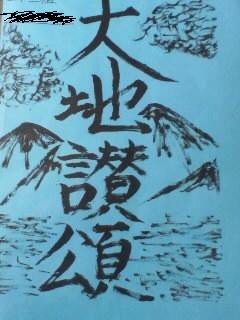 大地讃頌